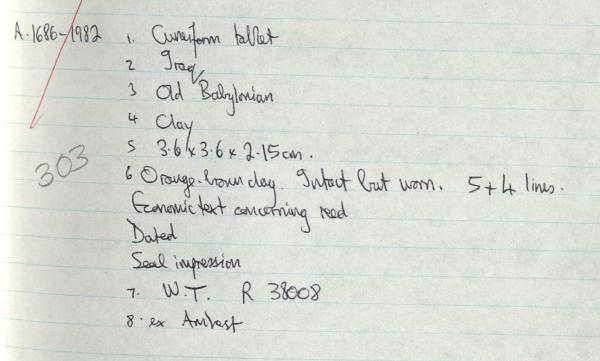 A.1686-1982 1. Cuneiform tablet
2 Iraq
3 Old Babylonian
4 Clay
5 3.6 x 3.6 x 2.15cm.
303
6 Orange-brown clay. Intact but worn. 5+4 lines.
Economic text concerning reed
Dated
Seal impression
7. W.T. R 38008
8. ex Ambast